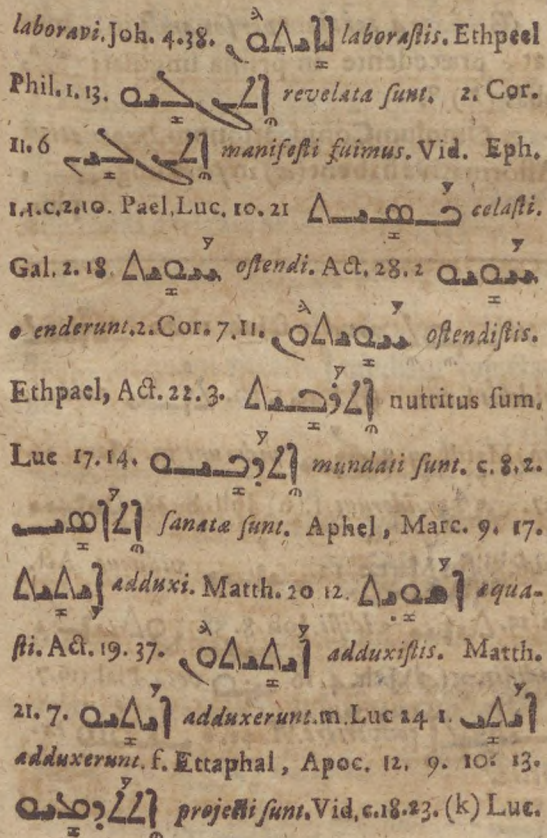 laboravi. Joh. 4.38. ܠܐܝܬܘܢ laboraſtis. Ethpeel
Phil. 1. 13. ܐܬܓܠܝܘ revelata ſunt. 2. Cor.
11. 6 ܐܬܓܠܝܢ manifeſti fuimus. Vid. Eph.
1.1.c.2.10. Pael, Luc. 10. 21 ܟܣܝܬ celaſti.
Gal. 2. 18. ܚܘܝܬ oſtendi. Act. 28. 2 ܚܘܝܘ
enderunt. 2. Cor. 7. 11. ܚܘܝܬܘܢ oſtendiſtis.
Ethpael, Act. 22. 3. ܐܬܪܒܝܬ nutritus ſum.
Luc 17. 14. ܐܬܕܟܝܘ mundati ſunt. c. 8. 2.
ܐܬܐܣܝ ſanatæ ſunt. Aphel, Marc. 9. 17.
ܐܝܬܝܬ adduxi. Matth. 20 12. ܐܫܘܝܬ æqua-
ſti. Act. 19. 37. ܐܝܬܝܬܘܢ adduxiſtis. Matth.
21. 7. ܐܝܬܝܘ adduxerunt. m. Luc 24 1. ܐܝܬܝ
adduxerunt. f. Ettaphal, Apoc. 12. 9. 10. 13.
ܐܬܬܪܡܝܘ projecti ſunt. Vid, c. 18. 23. (k) Luc.